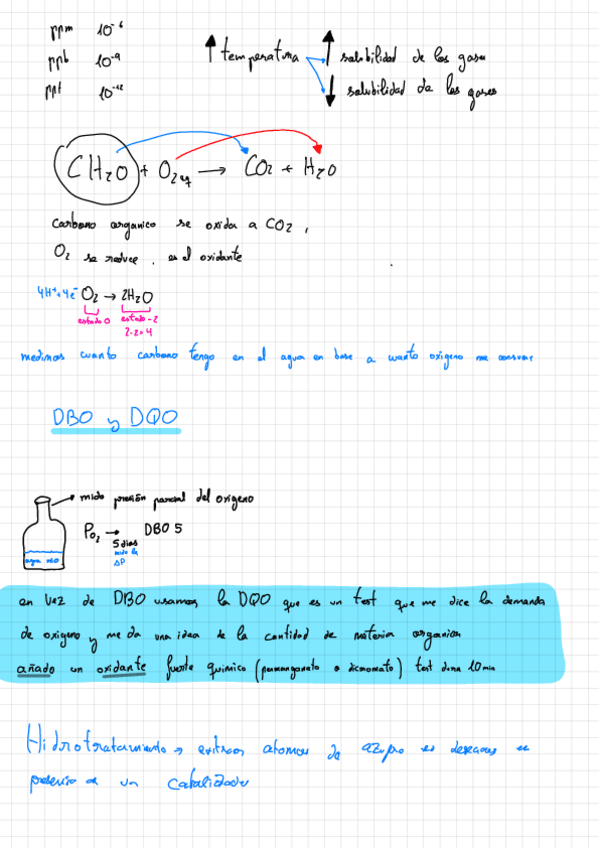 ppm 10⁻⁶
ppb 10⁻⁹
ppt 10⁻¹²
↑ temperatura ↑ solubilidad de los gases
↓ solubilidad de los gases
CH₂O + O₂ → CO₂ + H₂O
Carbono organico se oxida a CO₂,
O₂ se reduce, es el oxidante
4H⁺+4e⁻ O₂ → 2H₂O
estado 0 estado -2
2·2=4
medimos cuanto carbono tengo en el agua en base a cuanto oxigeno me consume
DBO y DQO
mido presión parcial del oxigeno
Po₂ → DBO 5
5 dias
mido la
ΔP
agua
en vez de DBO usamos la DQO que es un test que me dice la demanda
de oxigeno y me da una idea de la cantidad de materia organica
añado un oxidante fuerte quimico (permanganato o dicromato) test dura 10 min
Hidrotratamiento → atomos de en
presencia de un catalizador